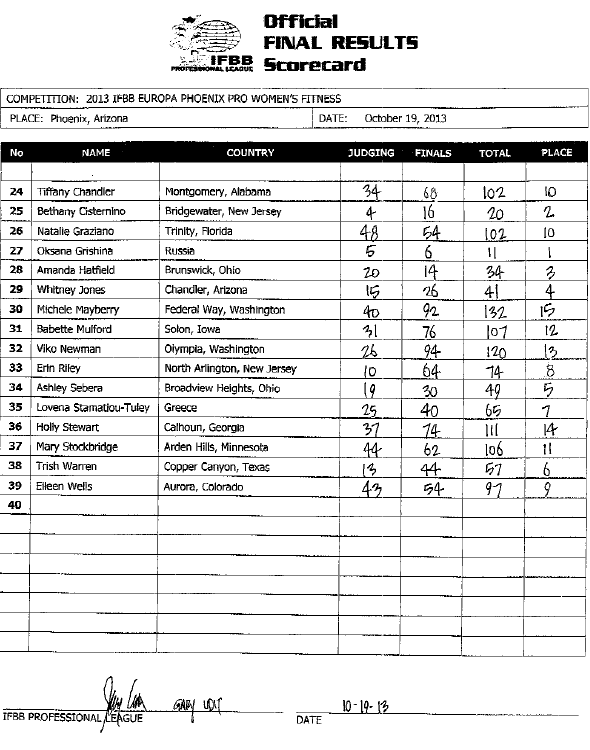 Official
FINAL RESULTS
Scorecard
IFBB
PROFESSIONAL LEAGUE
COMPETITION: 2013 IFBB EUROPA PHOENIX PRO WOMEN'S FITNESS
PLACE: Phoenix, Arizona DATE: October 19, 2013
No NAME COUNTRY JUDGING FINALS TOTAL PLACE
24 Tiffany Chandler Montgomery, Alabama 34 68 102 10
25 Bethany Cisternino Bridgewater, New Jersey 4 16 20 2
26 Natalie Graziano Trinity, Florida 48 54 102 10
27 Oksana Grishina Russia 5 6 11 1
28 Amanda Hatfield Brunswick, Ohio 20 14 34 3
29 Whitney Jones Chandler, Arizona 15 26 41 4
30 Michele Mayberry Federal Way, Washington 40 92 132 15
31 Babette Mulford Solon, Iowa 31 76 107 12
32 Viko Newman Olympia, Washington 26 94 120 13
33 Erin Riley North Arlington, New Jersey 10 64 74 8
34 Ashley Sebera Broadview Heights, Ohio 19 30 49 5
35 Lovena Stamatiou-Tuley Greece 25 40 65 7
36 Holly Stewart Calhoun, Georgia 37 74 111 14
37 Mary Stockbridge Arden Hills, Minnesota 44 62 106 11
38 Trish Warren Copper Canyon, Texas 13 44 57 6
39 Eileen Wells Aurora, Colorado 43 54 97 9
40
GARY UDIT 10-19-13
IFBB PROFESSIONAL LEAGUE DATE